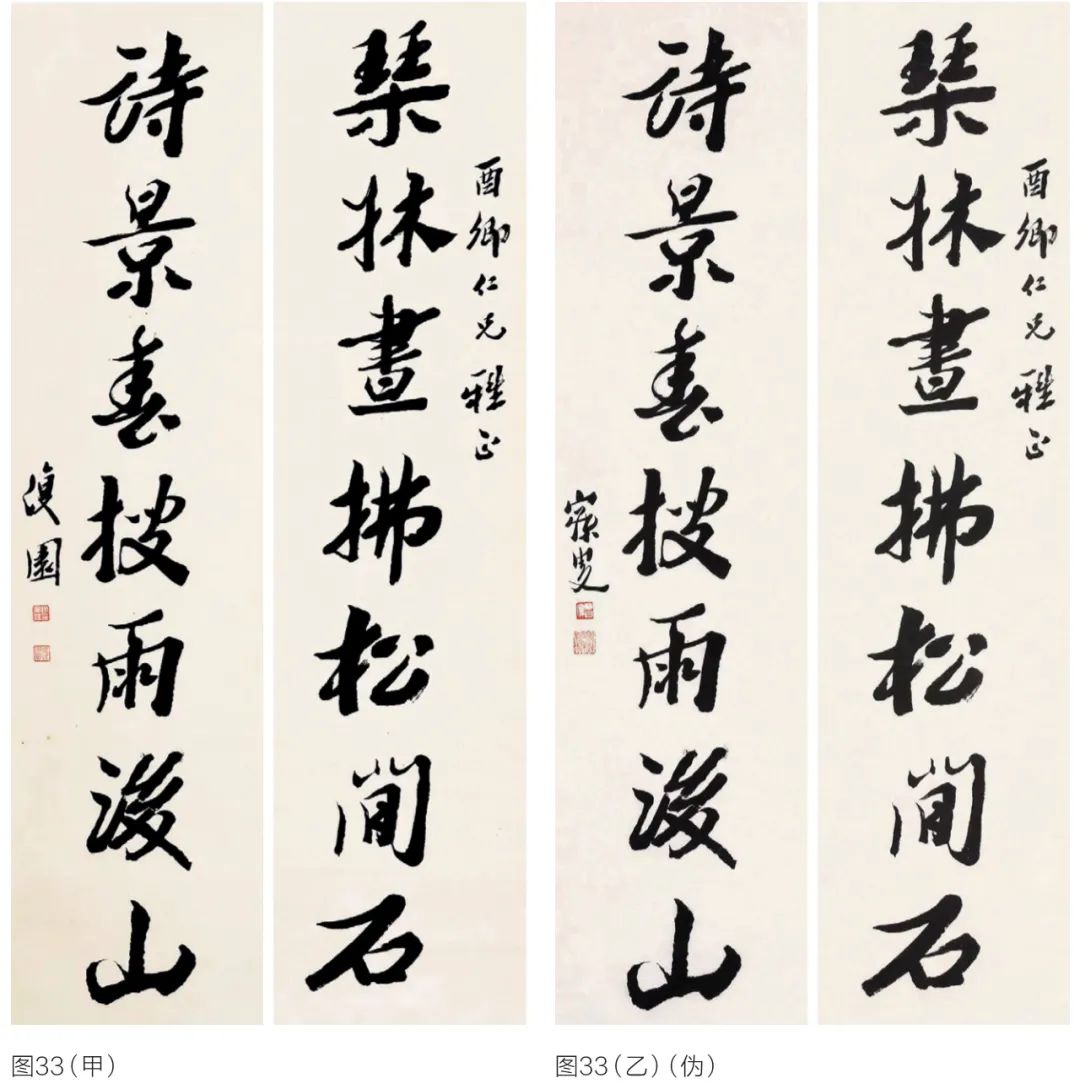 酉卿仁兄雅正
琹牀晝拂松間石
詩景春披雨後山
復園
图33（甲）
酉卿仁兄雅正
琹牀晝拂松間石
詩景春披雨後山
寐叟
图33（乙）（伪）